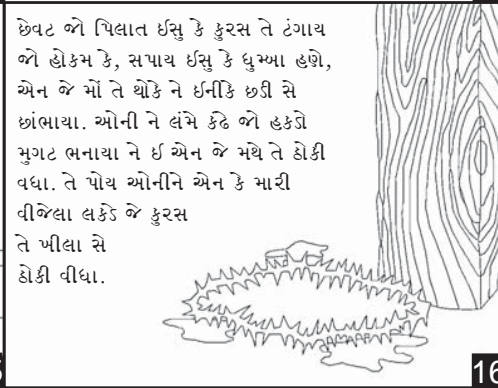 છેવટ જો પિલાત ઈસુ કે કુરસ તે ટંગાય
જો હોકમ કે, સપાય ઈસુ કે ધુમ્ભા હણે,
એન જે મોં તે થોકે ને ઈનીકે છડી સે
છાંભાયા. ઓની ને લંમે કંઢે જો હકડો
મુગટ ભનાયા ને ઈ એન જે મથે તે ઠોકી
વધા. તે પોય ઓનીને એન કે મારી
વીજેલા લકડે જે કુરસ
તે ખીલા સે
ઠોકી વીધા.
16